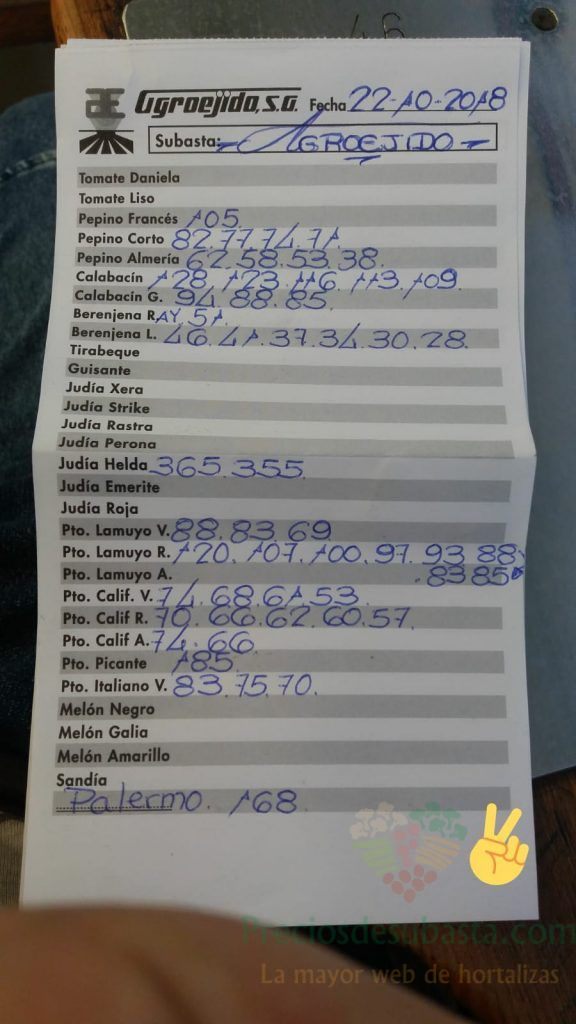 46
Æ Agroejido, S.A. Fecha 22-10-2018
Subasta: AGROEJIDO
Tomate Daniela
Tomate Liso
Pepino Francés 105
Pepino Corto 82.77.74.71.
Pepino Almería 62.58.53.38.
Calabacín 128. 123. 116. 113. 109.
Calabacín G. 94.88.85.
Berenjena RAY. 51
Berenjena L. 46.41.37.34.30.28.
Tirabeque
Guisante
Judía Xera
Judía Strike
Judía Rastra
Judía Perona
Judía Helda 365.355.
Judía Emerite
Judía Roja
Pto. Lamuyo V. 88.83.69
Pto. Lamuyo R. 120. 107. 100. 97. 93. 88
Pto. Lamuyo A. .83 85
Pto. Calif. V. 74.68.61.53
Pto. Calif R. 70.66.62.60.57.
Pto. Calif A. 74.66.
Pto. Picante 185.
Pto. Italiano V. 83.75.70.
Melón Negro
Melón Galia
Melón Amarillo
Sandía
Palermo. 168.
Preciosdesubasta.com
La mayor web de hortalizas